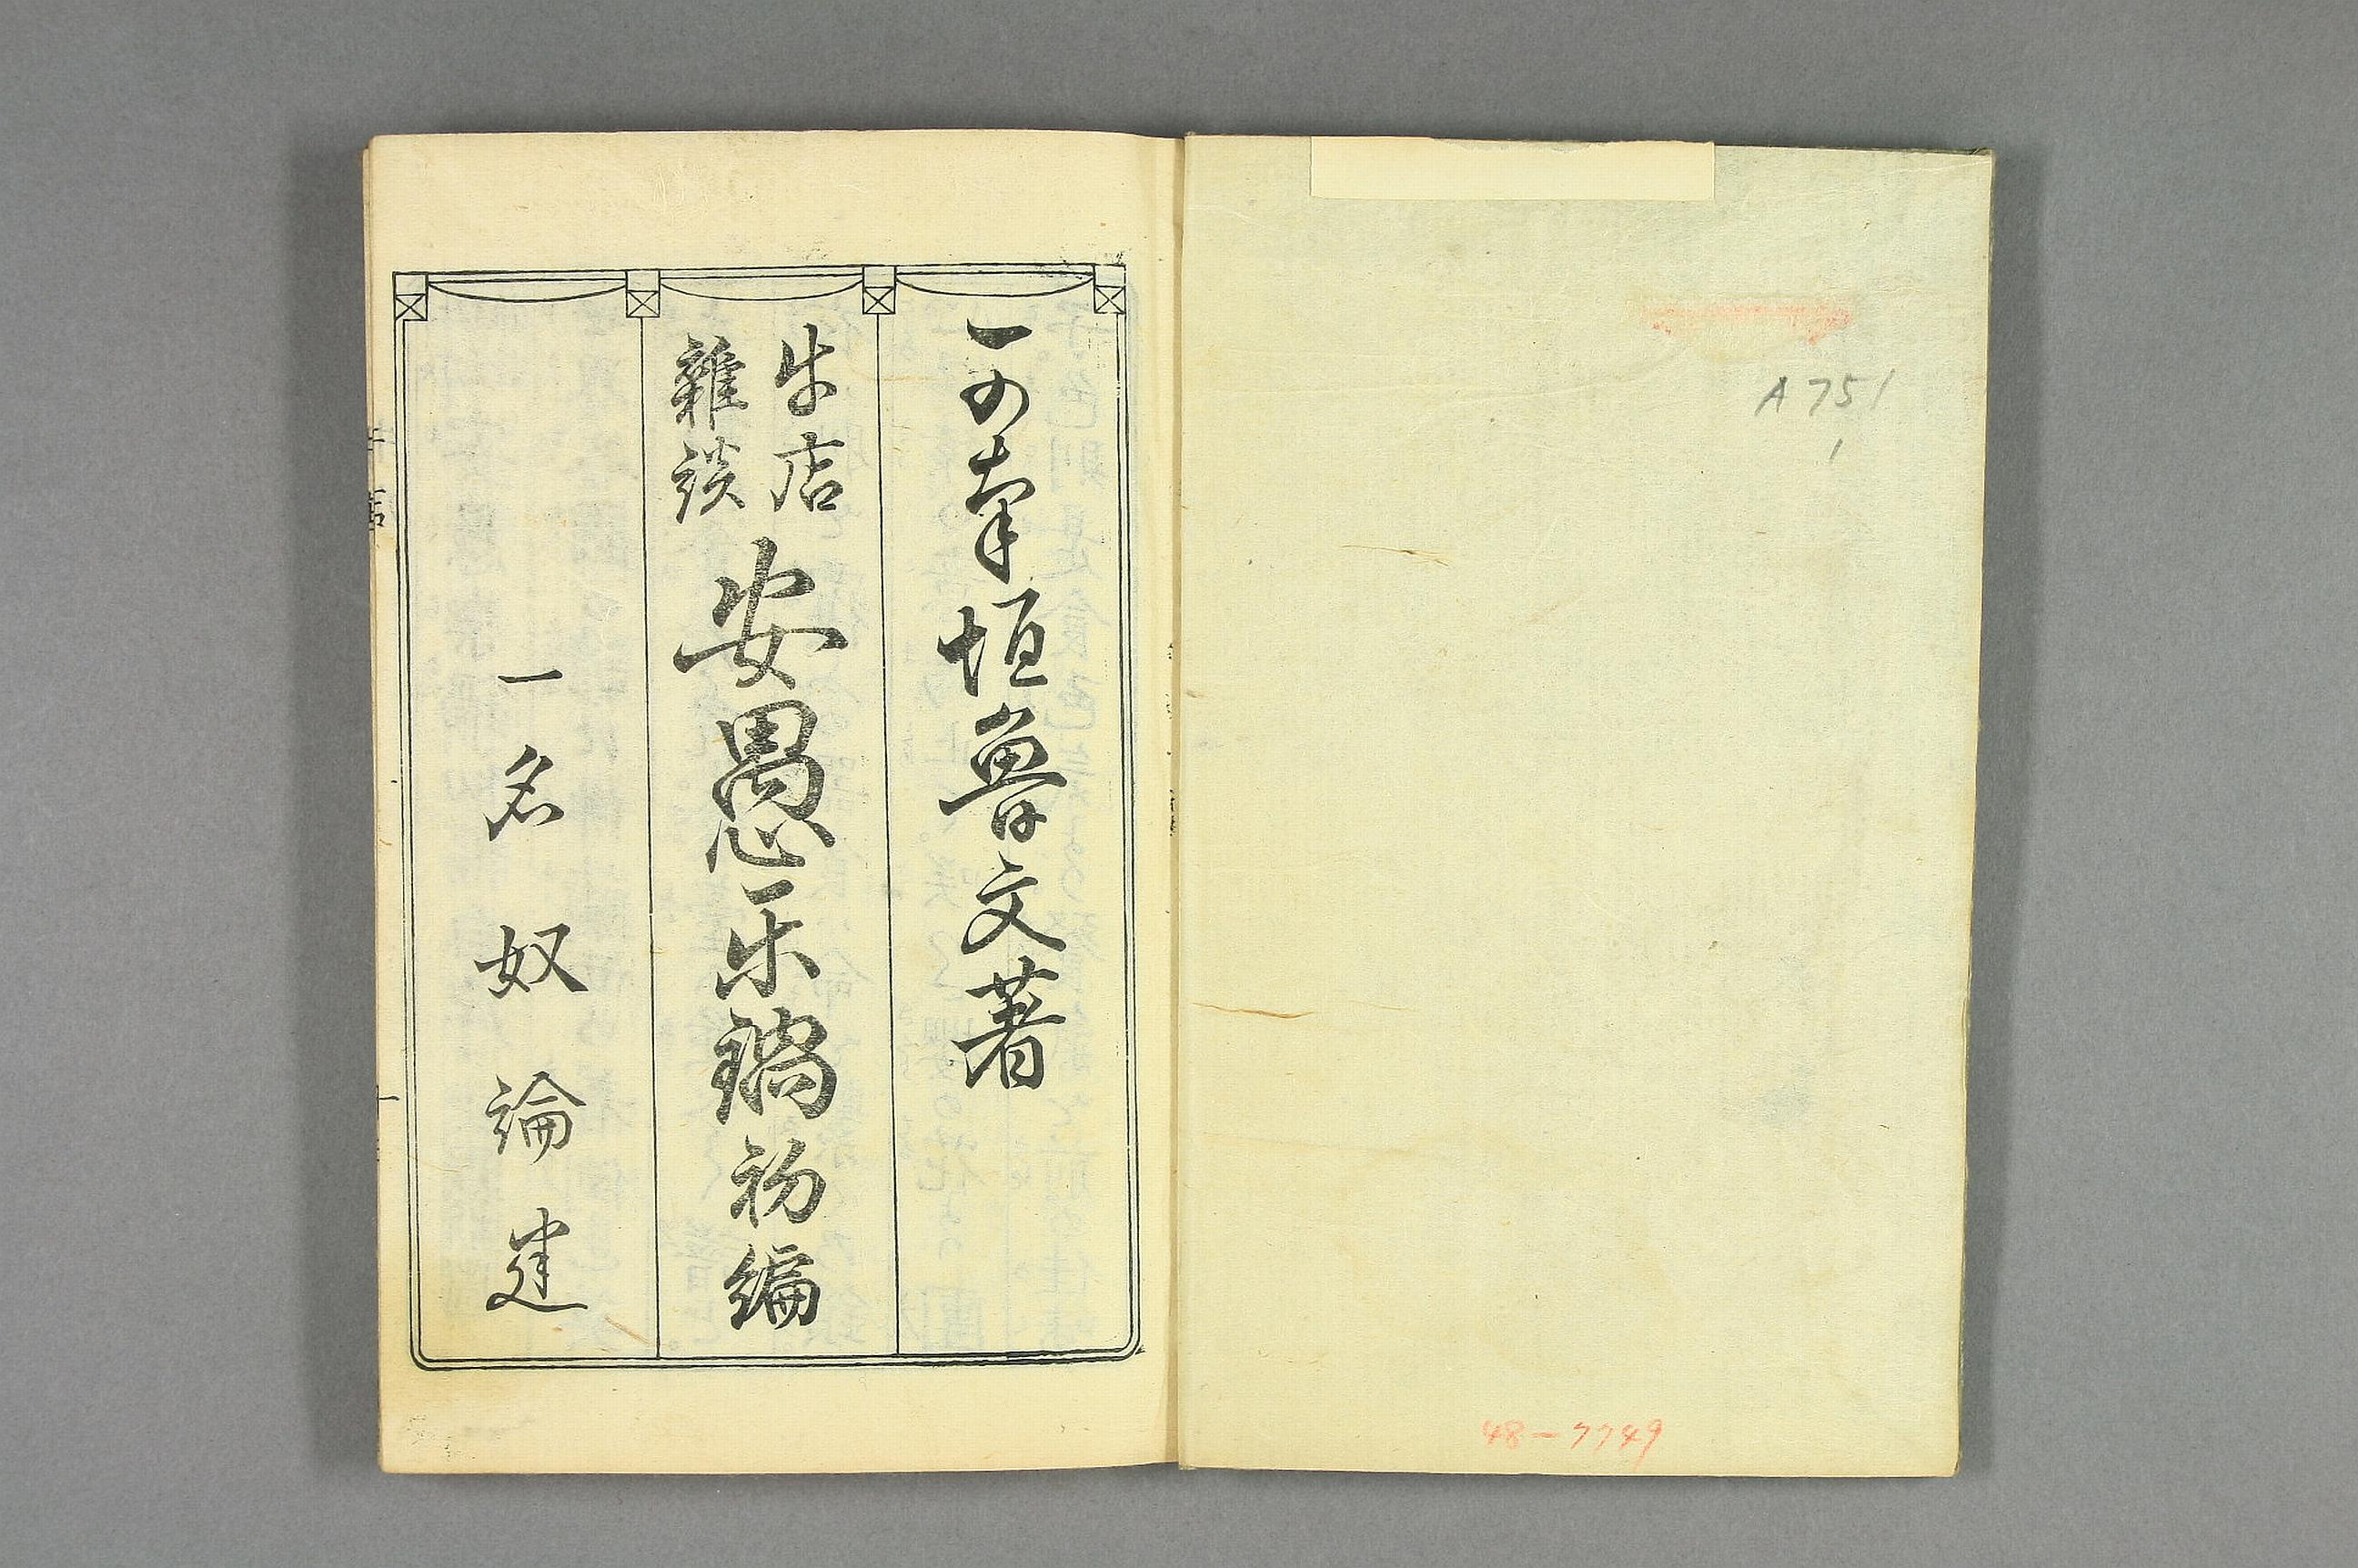 A751
1
48-7749
可奈垣魯文著
牛店
雜談
安愚乐鍋初編
一名奴論建